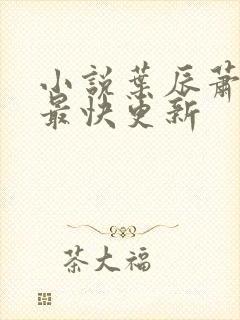 小說葉辰蕭
最快更新
茶大福